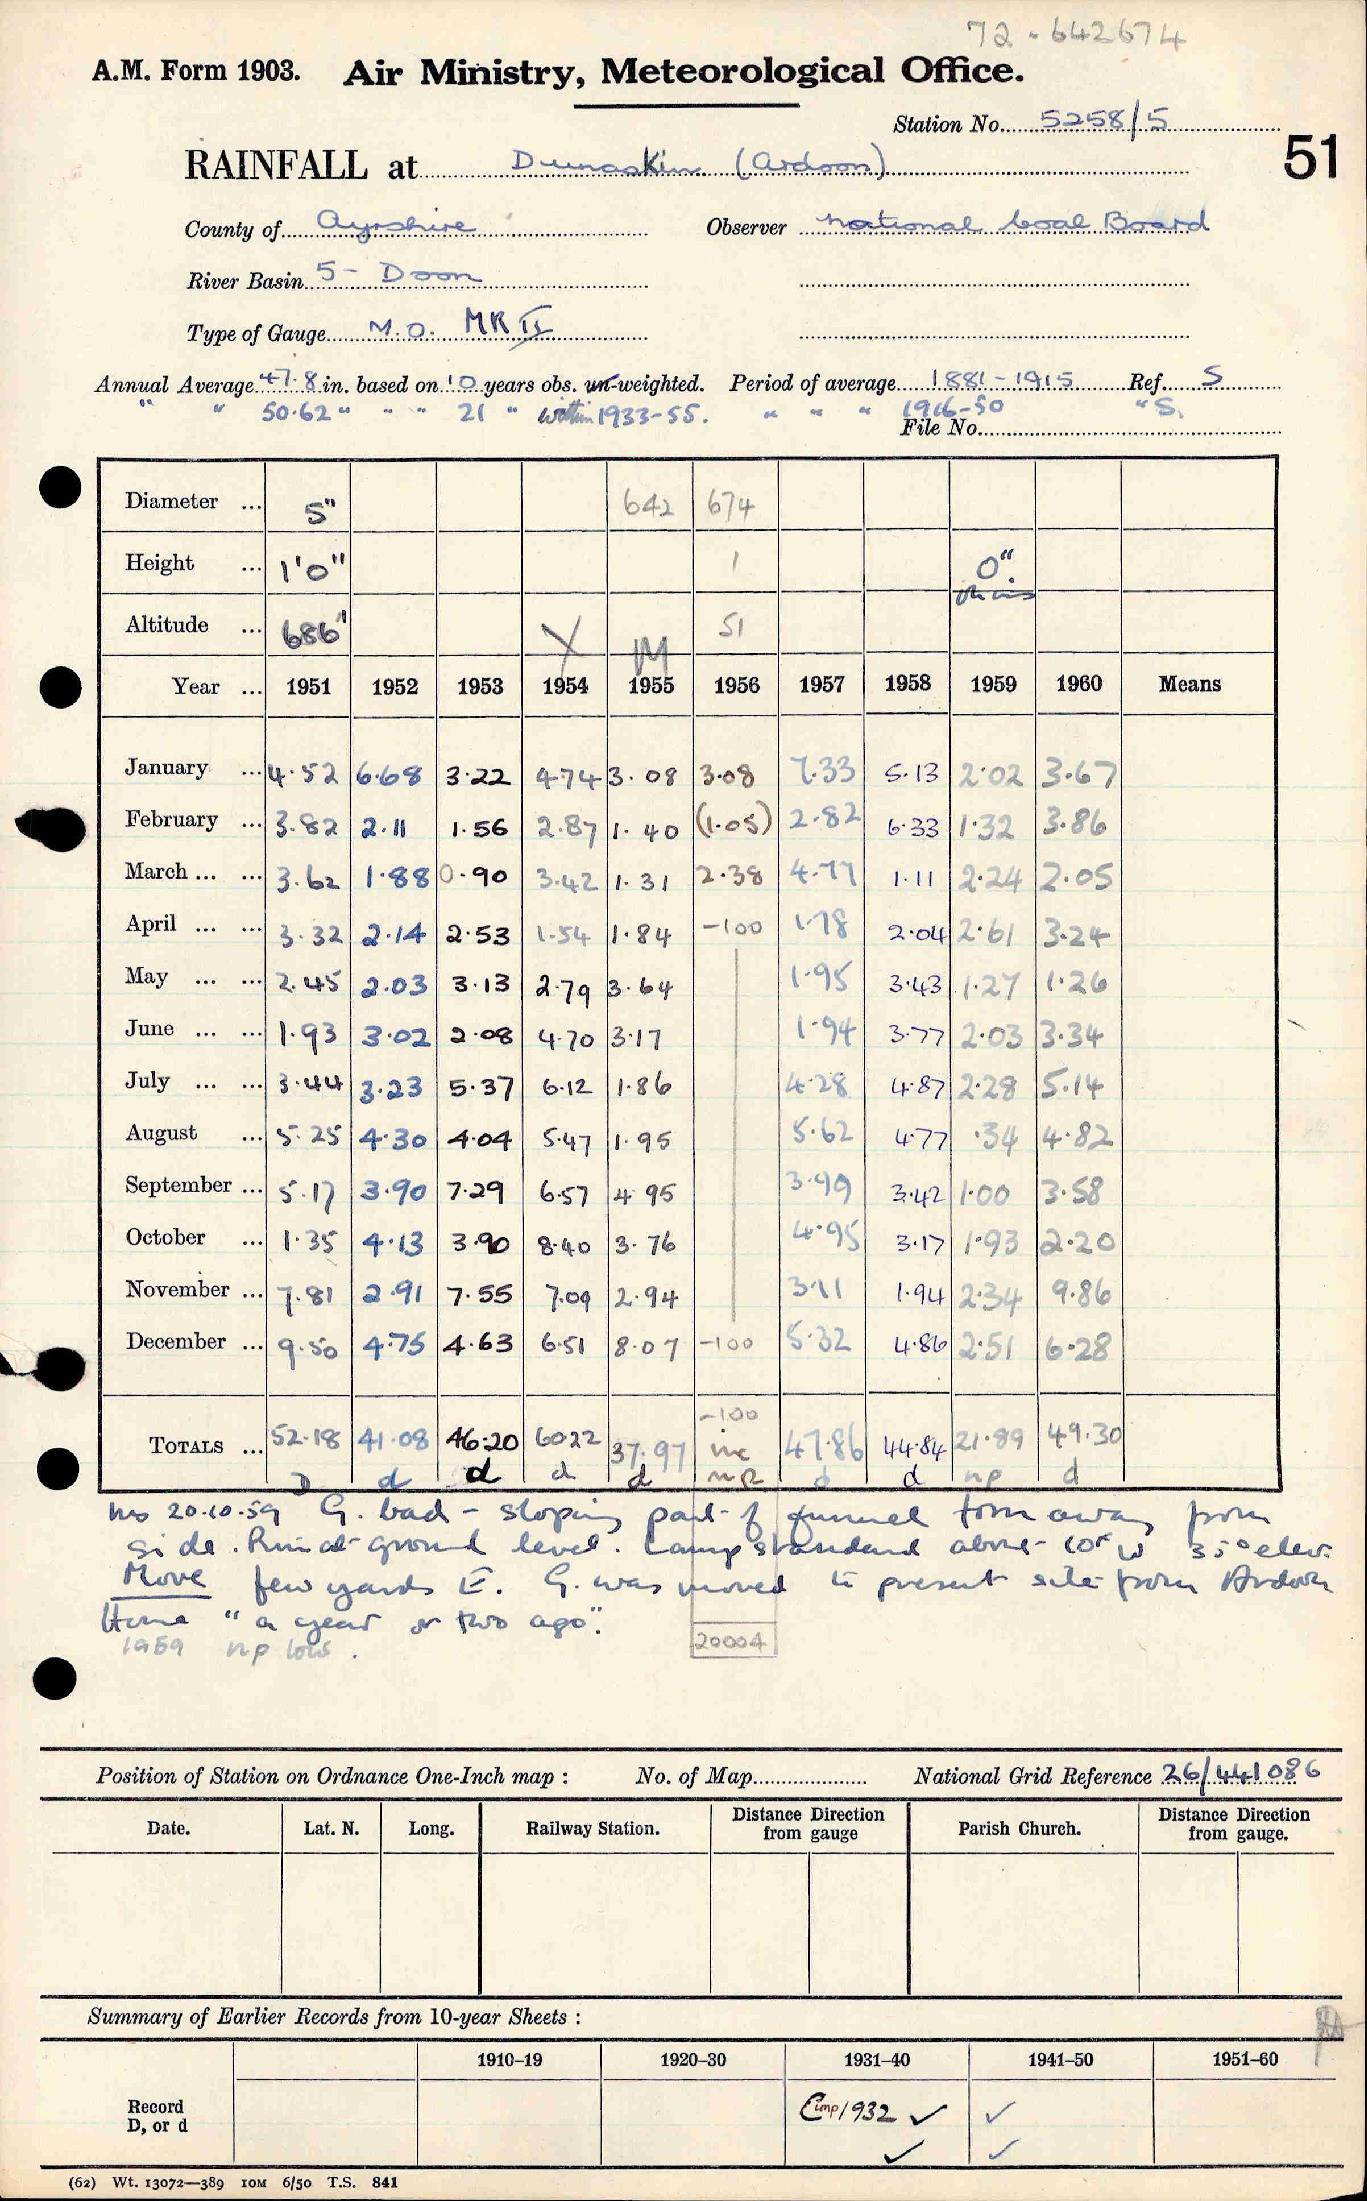 72 - 642674
A.M. Form 1903. Air Ministry, Meteorological Office.
Station No. 5258/5
51
RAINFALL at Dunaskin (Ardoon)
County of Ayrshire Observer National Coal Board
River Basin 5 - Doon
Type of Gauge M.O. MK II
Annual Average 47.8 in. based on 10 years obs. un-weighted. Period of average 1881-1915 Ref. S
" " 50.62 " " " 21 " within 1933-55. " " " 1916-50 " S.
File No.
Diameter ... 5" 642 674
Height ... 1'0" 1 0"
Altitude ... 686' Y M 51
Year ... 1951 1952 1953 1954 1955 1956 1957 1958 1959 1960 Means
January ... 4.52 6.68 3.22 4.74 3.08 3.08 7.33 5.13 2.02 3.67
February ... 3.82 2.11 1.56 2.87 1.40 (1.05) 2.82 6.33 1.32 3.86
March ... ... 3.62 1.88 0.90 3.42 1.31 2.38 4.77 1.11 2.24 2.05
April ... ... 3.32 2.14 2.53 1.54 1.84 -100 1.78 2.04 2.61 3.24
May ... ... 2.45 2.03 3.13 2.79 3.64 1.95 3.43 1.27 1.26
June ... ... 1.93 3.02 2.08 4.70 3.17 1.94 3.77 2.03 3.34
July ... ... 3.44 3.23 5.37 6.12 1.86 4.28 4.87 2.28 5.14
August ... 5.25 4.30 4.04 5.47 1.95 5.62 4.77 .34 4.82
September ... 5.17 3.90 7.29 6.57 4.95 3.99 3.42 1.00 3.58
October ... 1.35 4.13 3.90 8.40 3.76 4.95 3.17 1.93 2.20
November ... 7.81 2.91 7.55 7.09 2.94 3.11 1.94 2.34 9.86
December ... 9.50 4.75 4.63 6.51 8.07 -100 5.32 4.86 2.51 6.28
-100
TOTALS ... 52.18 41.08 46.20 60.22 37.97 inc 47.86 44.84 21.89 49.30
D d d d d np d d np d
Ins 20.10.59 G. bad - sloping part of funnel torn away from
side. Rim at ground level. Lamp standard above 10ft W 35° elev.
Move few yards E. G. was moved to present site from Ardoon
House "a year or two ago".
1959 np low.
20004
Position of Station on Ordnance One-Inch map : No. of Map National Grid Reference 26/441086
Date. Lat. N. Long. Railway Station. Distance Direction from gauge Parish Church. Distance Direction from gauge.
Summary of Earlier Records from 10-year Sheets :
1910-19 1920-30 1931-40 1941-50 1951-60
Record
D, or d
Emp 1932 ✓ ✓
✓ ✓
(62) Wt. 13072—389 10M 6/50 T.S. 841